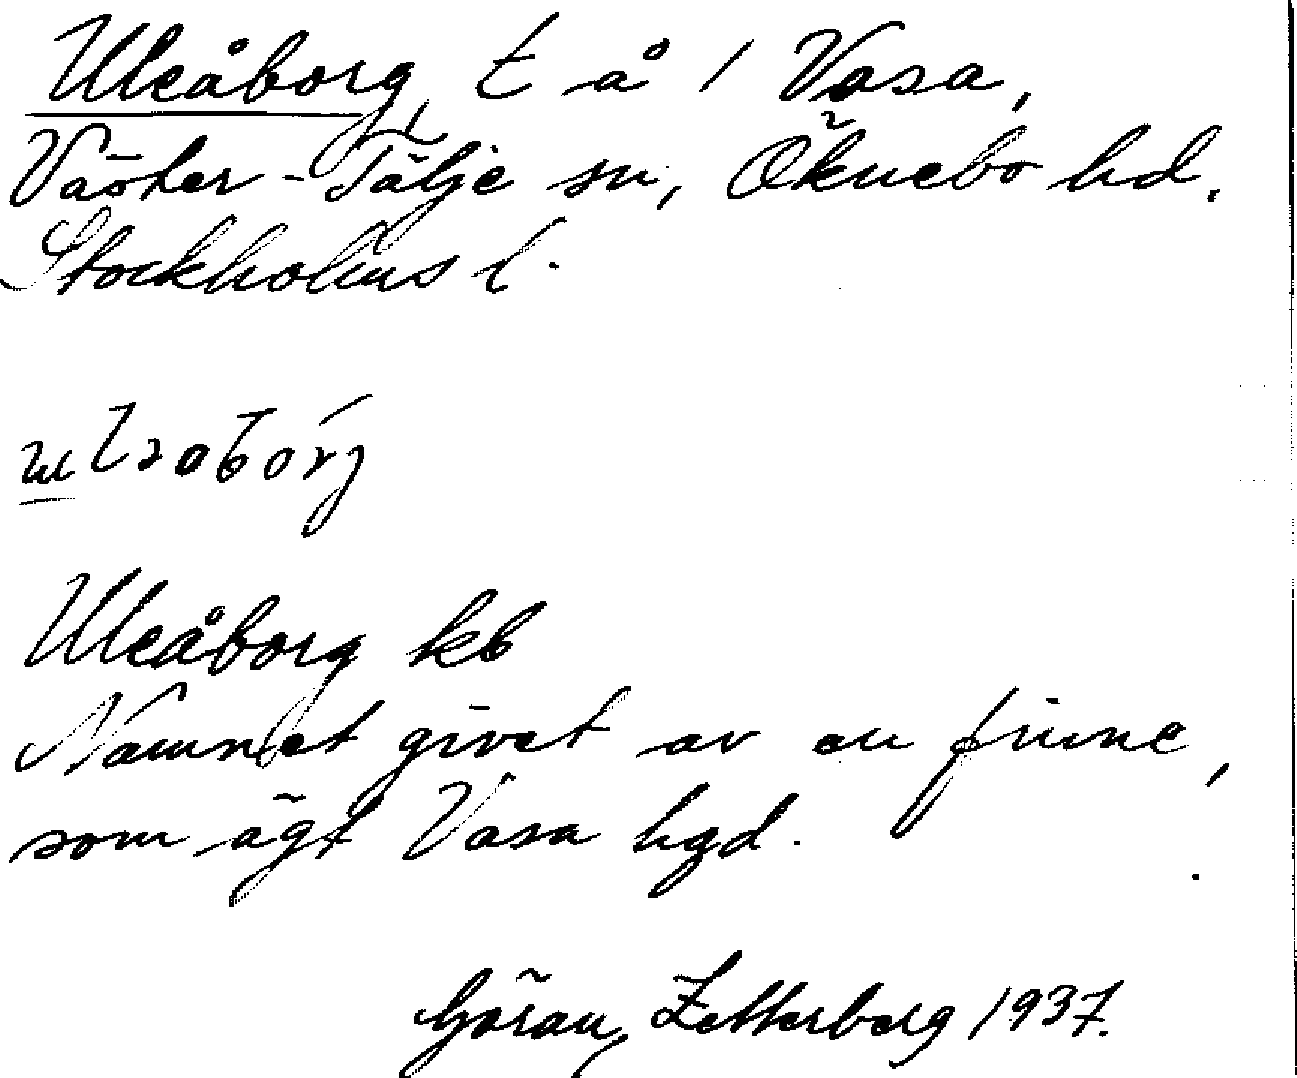 Uleåborg, t å 1 Vasa,
Väster-Tälje sn, Öknebo hd.
Stockholms l.
Uleåborg kb
Namnet givet av en finne,
som ägt Vasa hgd.
Göran Zetterberg 1937.